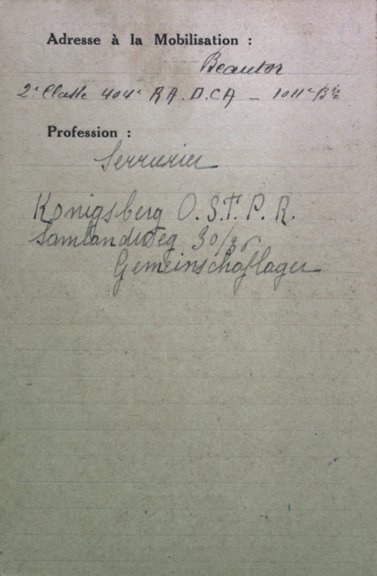 Adresse à la Mobilisation :
Beautor
2e Classe 404e RA. D.CA - 1011e Bie
Profession :
Serrurier
Königsberg O.S.T. P.R.
Samlandweg 30/36
Gemeinschaflager